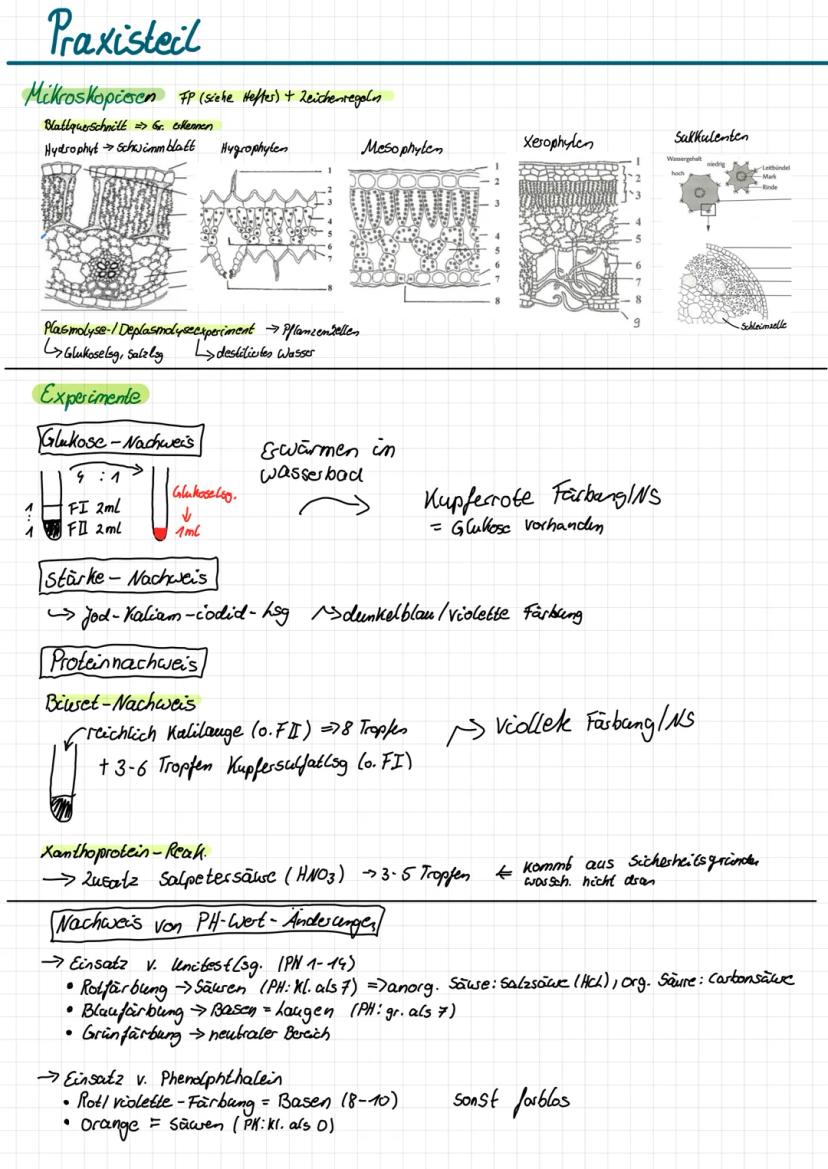 Praxisteil
Mikroskopieren FP (siehe Hefter) + Zeichenregeln
Blattquerschnitt => Gr. erkennen
Hydrophyt → Schwimmblatt
Hygrophyten
1
2
3
4
5
6
7
8
Mesophyten
1
2
3
4
5
6
7
8
Xerophyten
1
2
3
4
5
6
7
8
9
Sukkulenten
Wassergehalt
hoch
niedrig
Leitbündel
Mark
Rinde
Schleimzelle
Plasmolyse-/Deplasmolyseexperiment → Pflanzenzellen
↳ Glukoselsg, Salzlsg ↳ destiliertes Wasser
Experimente
Glukose-Nachweis
4 : 1
1
:
1
FI 2ml
FII 2ml
Glukoselsg.
↓
1ml
Erwärmen in
Wasserbad
Kupferrote Färbung/NS
= Glukose vorhanden
Stärke-Nachweis
↪ Jod-Kalium-iodid-lsg → dunkelblau/violette Färbung
Proteinnachweis
Biuret-Nachweis
reichlich Kalilauge (o. FII) => 8 Tropfen
+ 3-6 Tropfen Kupfersulfatlsg (o. FI)
→ viollete Färbung/NS
Xanthoprotein-Reak.
→ Zusatz Salpetersäure (HNO3) → 3-5 Tropfen ← kommt aus Sicherheitsgründen
warsch. nicht dran
Nachweis von PH-Wert-Änderungen
→ Einsatz v. Unitestlsg. (PH 1-14)
• Rotfärbung → Säuren (PH: kl. als 7) => anorg. Säure: Salzsäure (HCl), org. Säure: Carbonsäure
• Blaufärbung → Basen = Laugen (PH: gr. als 7)
• Grünfärbung → neutraler Bereich
→ Einsatz v. Phenolphthalein
• Rot/violette-Färbung = Basen (8-10) sonst farblos
• Orange = Säuren (PH: kl. als 0)